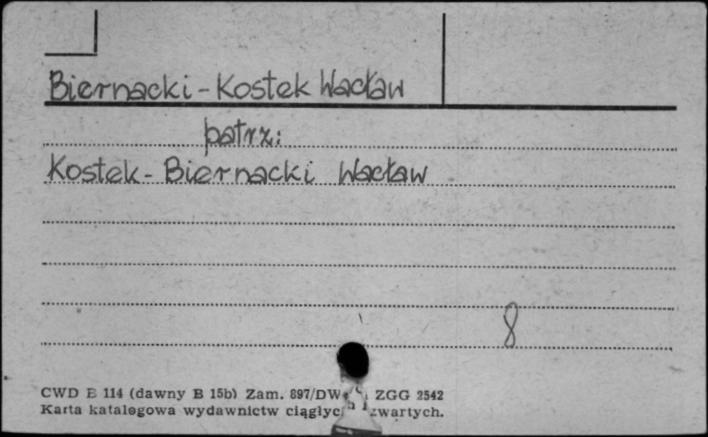 Biernacki-Kostek Wacław
patrz:
Kostek-Biernacki Wacław
8
CWD B 114 (dawny B 15b) Zam. 897/DW ZGG 2542
Karta katalogowa wydawnictw zwartych.